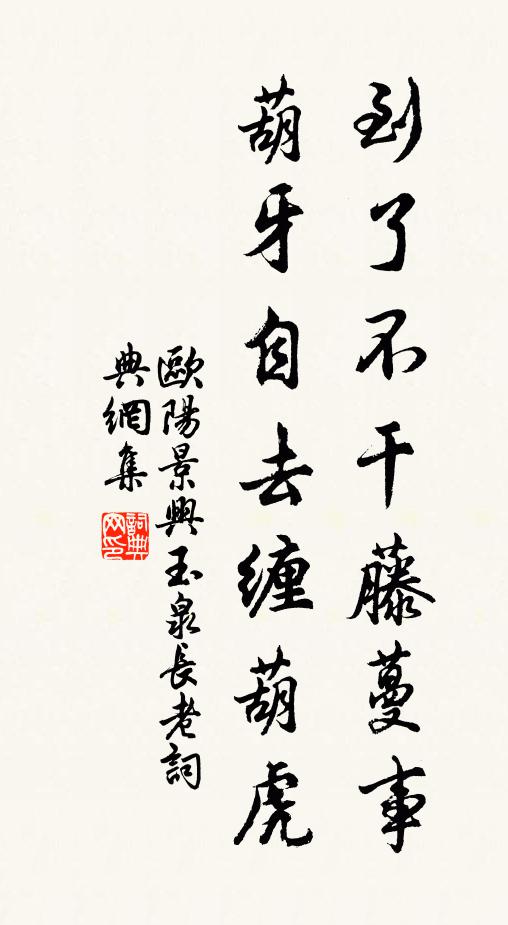 到了不干藤蔓事
葫牙自去缠葫虎
歐陽景與玉泉長老詞
典網集
詞典
网印